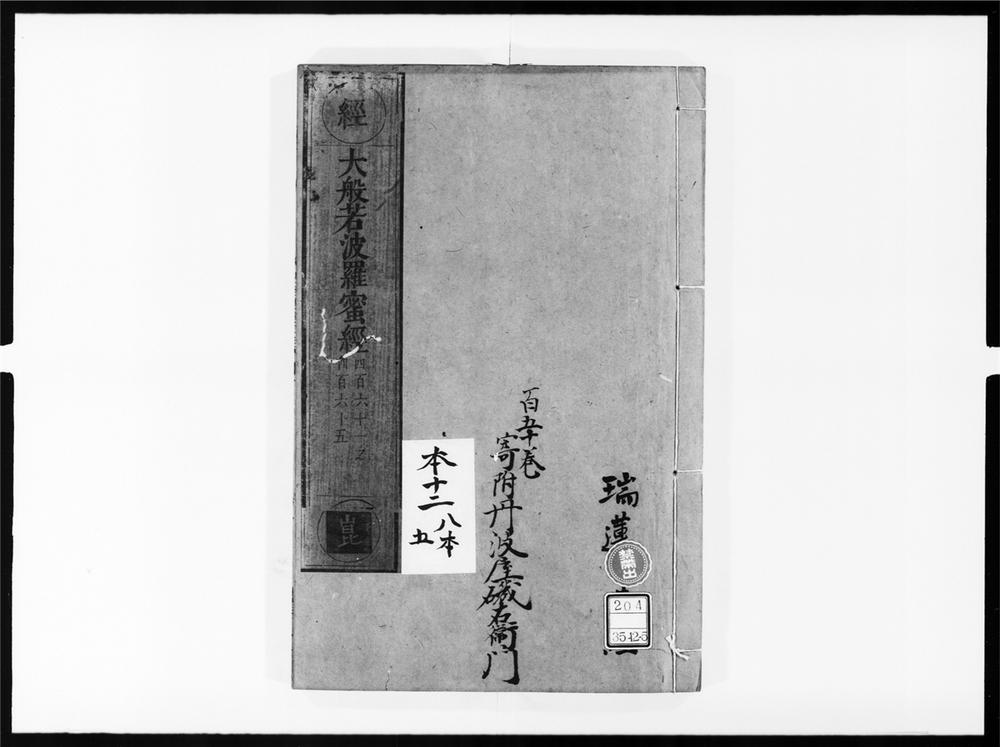 瑞蓮
禁帶出
204
3542-5
百五十巻
寄附丹波屋磯右衛門
本十二
八本
五
經
大般若波羅蜜經
四百六十一之
四百六十五
崑